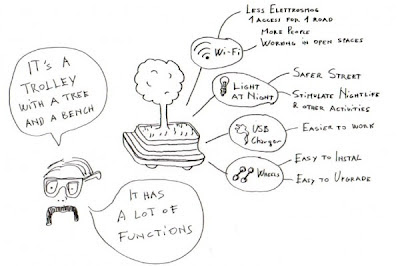 IT'S A
TROLLEY
WITH A TREE
AND A BENCH
IT HAS
A LOT OF
FUNCTIONS
Wi-Fi
LESS ELETTROSMOG
1 ACCESS FOR 1 ROAD
MORE PEOPLE
WORKING IN OPEN SPACES
LIGHT
AT NIGHT
SAFER STREET
STIMULATE NIGHTLIFE
& OTHER ACTIVITIES
USB
Charger
EASIER TO WORK
WHEELS
EASY TO INSTAL
EASY TO UPGRADE